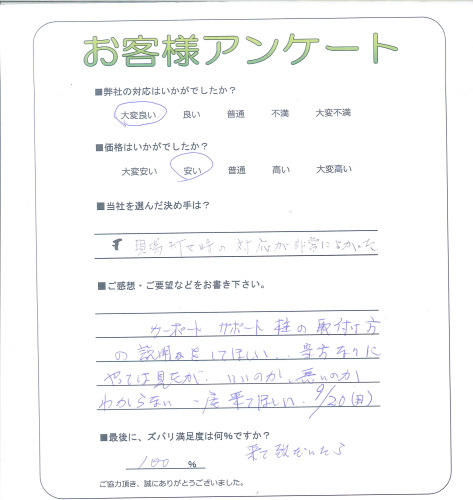 お客様アンケート
■弊社の対応はいかがでしたか?
大変良い 良い 普通 不満 大変不満
■価格はいかがでしたか?
大変安い 安い 普通 高い 大変高い
■当社を選んだ決め手は?
現場打合せ時の対応が非常によかった
■ご感想・ご要望などをお書き下さい。
カーポート サポート柱の取付け方
の説明をしてほしい、当方なりに
やっては見たが、いいのか、悪いのか
わからない 一度来てほしい、9/20(日)
■最後に、ズバリ満足度は何%ですか?
来て頂いたら
100 %
ご協力頂き、誠にありがとうございました。